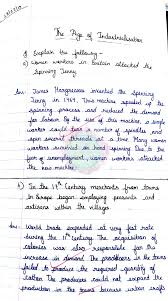 The Age of Industrialisation
Q Explain the following -
a) Women workers in Britain attacked the
Spinning Jenny
Ans: James Hargreaves invented the Spinning
Jenny in 1764. This machine speeded up the
spinning process and reduced the demand
for labour. By the use of this machine, a single
worker could turn a number of spindles, and
spun several threads at a time. Many women
workers survived on hand spinning. Due to the
fear of unemployment, women workers attacked
the new machine.
b) In the 17th Century merchants from towns
in Europe began employing peasants and
artisans within the villages
Ans: World trade expanded at very fast rate
during the 17th century. The acquisition of
colonies was also responsible for this
increase in demand. The producers in the towns
failed to produce the required quantity of
cloths. The producers could not expand the
production in the towns because urban